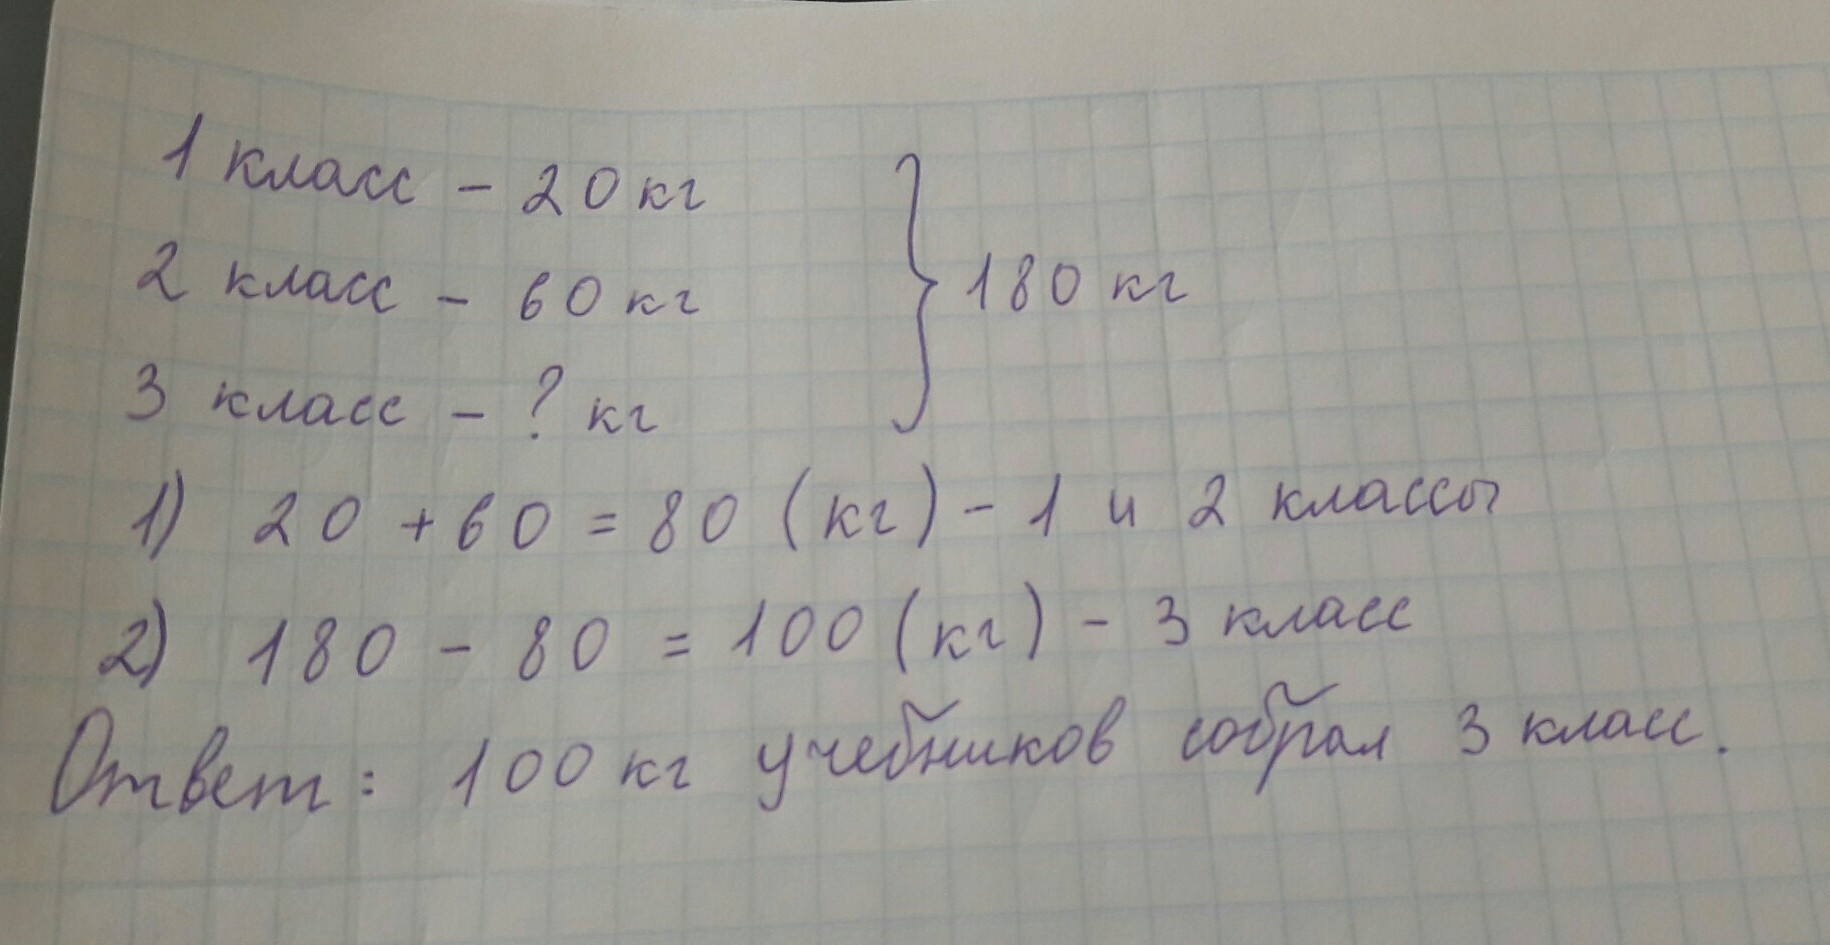 1 класс - 20 кг
2 класс - 60 кг
3 класс - ? кг
} 180 кг
1) 20 + 60 = 80 (кг) - 1 и 2 классы
2) 180 - 80 = 100 (кг) - 3 класс
Ответ: 100 кг учебников собрал 3 класс.